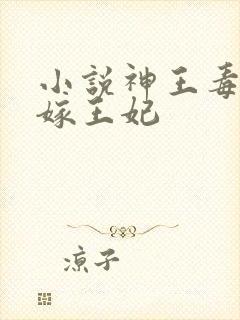 小説神王毒
嫁王妃
涼子